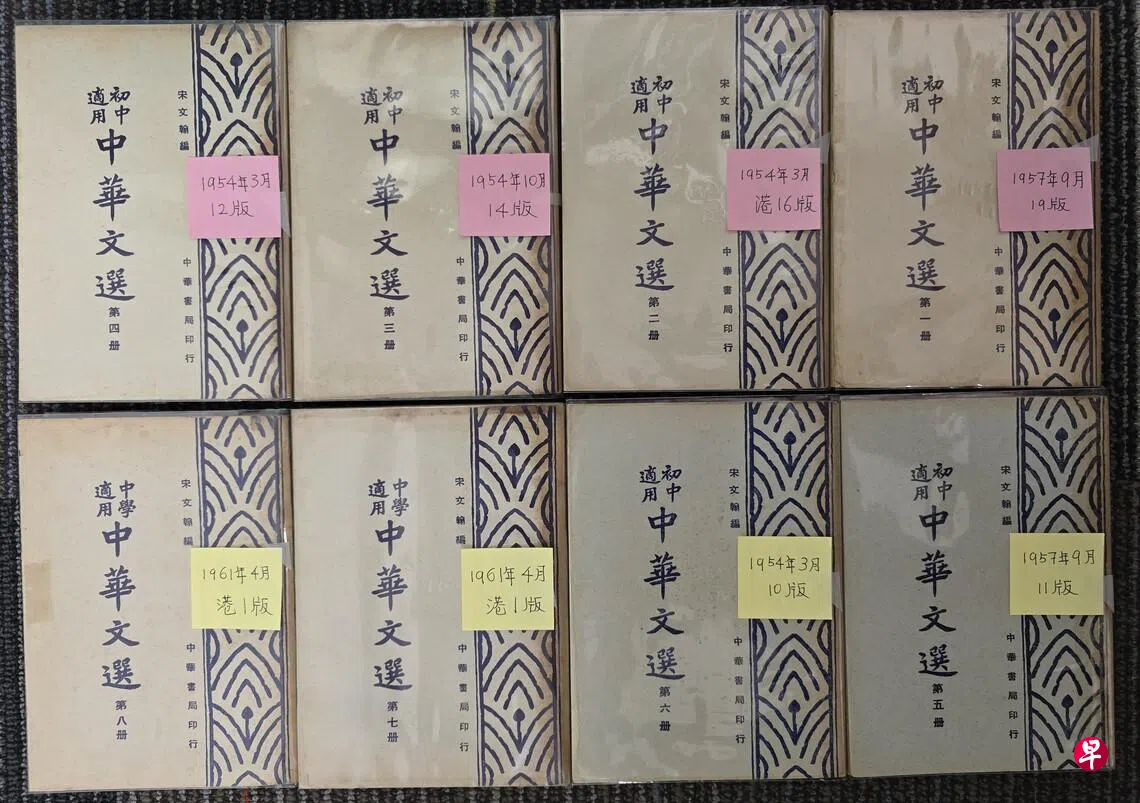 宋文翰編
1957年9月
19版
中華書局印行
初中
適用
中華文選
第一册
宋文翰編
1954年3月
港16版
中華書局印行
初中
適用
中華文選
第二册
宋文翰編
1954年10月
14版
中華書局印行
初中
適用
中華文選
第三册
宋文翰編
1954年3月
12版
中華書局印行
初中
適用
中華文選
第四册
宋文翰編
1957年9月
11版
中華書局印行
初中
適用
中華文選
第五册
宋文翰編
1954年3月
10版
中華書局印行
初中
適用
中華文選
第六册
宋文翰編
1961年4月
港1版
中華書局印行
中學
適用
中華文選
第七册
宋文翰編
1961年4月
港1版
中華書局印行
中學
適用
中華文選
第八册
早